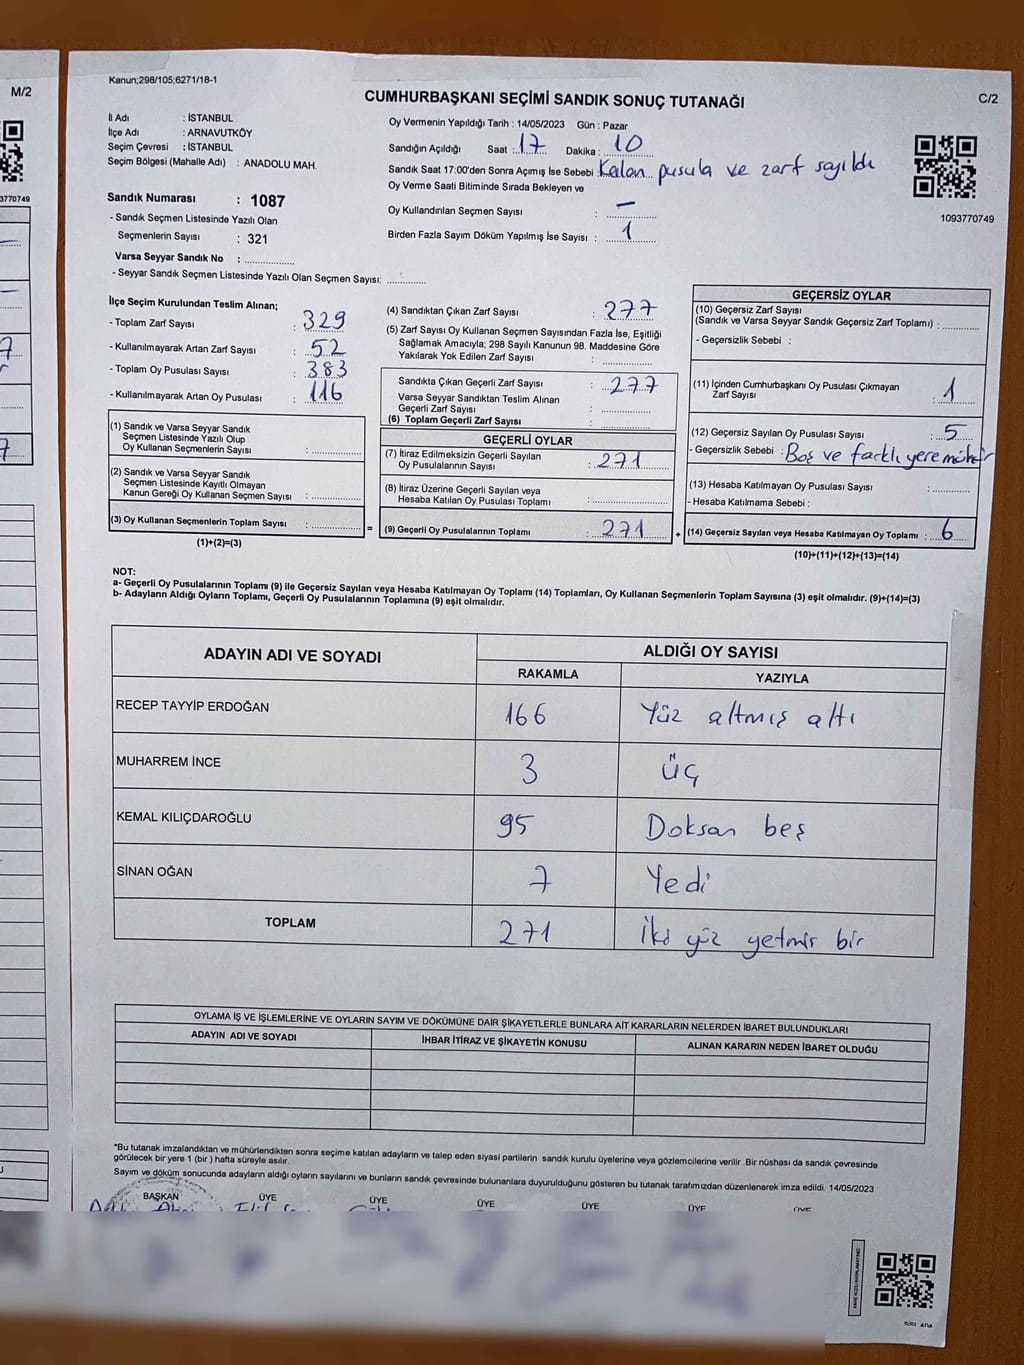 M/2
3770749
Kanun;298/105;6271/18-1
C/2
CUMHURBAŞKANI SEÇİMİ SANDIK SONUÇ TUTANAĞI
İl Adı : İSTANBUL
İlçe Adı : ARNAVUTKÖY
Seçim Çevresi : İSTANBUL
Seçim Bölgesi (Mahalle Adı) : ANADOLU MAH.
Sandık Numarası : 1087
- Sandık Seçmen Listesinde Yazılı Olan
Seçmenlerin Sayısı : 321
Varsa Seyyar Sandık No :
- Seyyar Sandık Seçmen Listesinde Yazılı Olan Seçmen Sayısı:
Oy Vermenin Yapıldığı Tarih : 14/05/2023 Gün : Pazar
Sandığın Açıldığı Saat : 17 Dakika : 10
Sandık Saat 17:00'den Sonra Açımış İse Sebebi : Kalan pusula ve zarf sayıldı
Oy Verme Saati Bitiminde Sırada Bekleyen ve
Oy Kullandırılan Seçmen Sayısı : —
Birden Fazla Sayım Döküm Yapılmış İse Sayısı : 1
1093770749
İlçe Seçim Kurulundan Teslim Alınan;
- Toplam Zarf Sayısı : 329
- Kullanılmayarak Artan Zarf Sayısı : 52
- Toplam Oy Pusulası Sayısı : 383
- Kullanılmayarak Artan Oy Pusulası : 116
(1) Sandık ve Varsa Seyyar Sandık
Seçmen Listesinde Yazılı Olup
Oy Kullanan Seçmenlerin Sayısı :
(2) Sandık ve Varsa Seyyar Sandık
Seçmen Listesinde Kayıtlı Olmayan
Kanun Gereği Oy Kullanan Seçmen Sayısı :
(3) Oy Kullanan Seçmenlerin Toplam Sayısı : =
(1)+(2)=(3)
(4) Sandıktan Çıkan Zarf Sayısı : 277
(5) Zarf Sayısı Oy Kullanan Seçmen Sayısından Fazla İse, Eşitliği
Sağlamak Amacıyla; 298 Sayılı Kanunun 98. Maddesine Göre
Yakılarak Yok Edilen Zarf Sayısı :
Sandıkta Çıkan Geçerli Zarf Sayısı : 277
Varsa Seyyar Sandıktan Teslim Alınan
Geçerli Zarf Sayısı :
(6) Toplam Geçerli Zarf Sayısı :
GEÇERLİ OYLAR
(7) İtiraz Edilmeksizin Geçerli Sayılan
Oy Pusulalarının Sayısı : 271
(8) İtiraz Üzerine Geçerli Sayılan veya
Hesaba Katılan Oy Pusulası Toplamı :
(9) Geçerli Oy Pusulalarının Toplamı : 271 +
GEÇERSİZ OYLAR
(10) Geçersiz Zarf Sayısı
(Sandık ve Varsa Seyyar Sandık Geçersiz Zarf Toplamı) :
- Geçersizlik Sebebi :
(11) İçinden Cumhurbaşkanı Oy Pusulası Çıkmayan
Zarf Sayısı : 1
(12) Geçersiz Sayılan Oy Pusulası Sayısı : 5
- Geçersizlik Sebebi : Boş ve farklı yere mühür
(13) Hesaba Katılmayan Oy Pusulası Sayısı :
- Hesaba Katılmama Sebebi :
(14) Geçersiz Sayılan veya Hesaba Katılmayan Oy Toplamı : 6
(10)+(11)+(12)+(13)=(14)
NOT:
a- Geçerli Oy Pusulalarının Toplamı (9) ile Geçersiz Sayılan veya Hesaba Katılmayan Oy Toplamı (14) Toplamları, Oy Kullanan Seçmenlerin Toplam Sayısına (3) eşit olmalıdır. (9)+(14)=(3)
b- Adayların Aldığı Oyların Toplamı, Geçerli Oy Pusulalarının Toplamına (9) eşit olmalıdır.
ADAYIN ADI VE SOYADI
ALDIĞI OY SAYISI
RAKAMLA YAZIYLA
RECEP TAYYİP ERDOĞAN 166 Yüz altmış altı
MUHARREM İNCE 3 üç
KEMAL KILIÇDAROĞLU 95 Doksan beş
SİNAN OĞAN 7 Yedi
TOPLAM 271 İki yüz yetmiş bir
OYLAMA İŞ VE İŞLEMLERİNE VE OYLARIN SAYIM VE DÖKÜMÜNE DAİR ŞİKAYETLERLE BUNLARA AİT KARARLARIN NELERDEN İBARET BULUNDUKLARI
ADAYIN ADI VE SOYADI İHBAR İTİRAZ VE ŞİKAYETİN KONUSU ALINAN KARARIN NEDEN İBARET OLDUĞU
*Bu tutanak imzalandıktan ve mühürlendikten sonra seçime katılan adayların ve talep eden siyasi partilerin sandık kurulu üyelerine veya gözlemcilerine verilir .Bir nüshası da sandık çevresinde
görülecek bir yere 1 (bir ) hafta süreyle asılır.
Sayım ve döküm sonucunda adayların aldığı oyların sayılarını ve bunların sandık çevresinde bulunanlara duyurulduğunu gösteren bu tutanak tarafımızdan düzenlenerek imza edildi. 14/05/2023
BAŞKAN ÜYE ÜYE ÜYE ÜYE ÜYE ÜYE